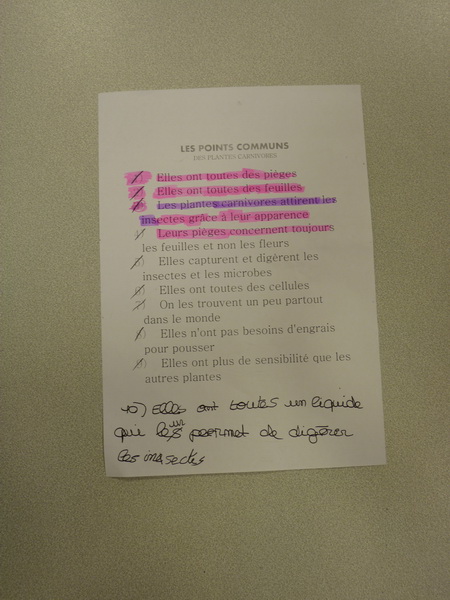 LES POINTS COMMUNS
DES PLANTES CARNIVORES
Elles ont toutes des pièges
Elles ont toutes des feuilles
Les plantes carnivores attirent les
insectes grâce à leur apparence
Leurs pièges concernent toujours
les feuilles et non les fleurs
Elles capturent et digèrent les
insectes et les microbes
Elles ont toutes des cellules
On les trouvent un peu partout
dans le monde
Elles n'ont pas besoins d'engrais
pour pousser
Elles ont plus de sensibilité que les
autres plantes
10) Elles ont toutes un liquide
qui leur permet de digérer
les insectes